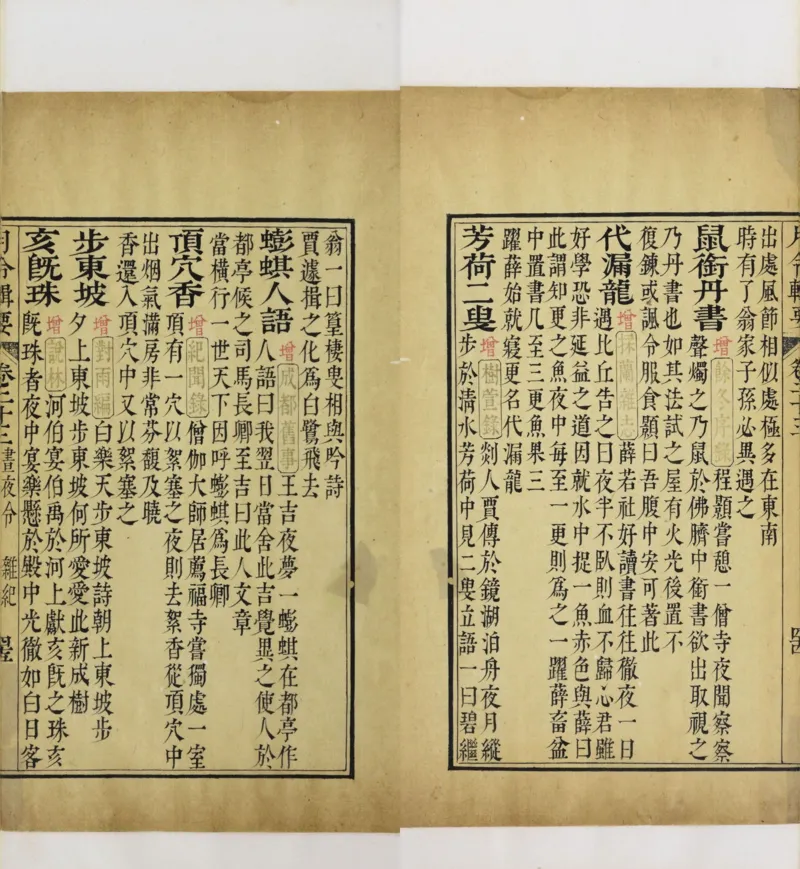 卷二十三
出處風節相似處極多在東南
時有了翁家子孫必異遇之
鼠銜丹書 增 餘冬序錄 程顥嘗憩一僧寺夜聞察察
聲燭之乃鼠於佛臍中銜書欲出取視之
乃丹書也如其法試之屋有火光後置不
復鍊或諷令服食顥曰吾腹中安可著此
代漏龍 增 採蘭雜志 薛若社好讀書往往徹夜一日
遇比丘告之曰夜半不臥則血不歸心君雖
好學恐非延益之道因就水中捉一魚赤色與薛曰
此謂知更之魚夜中每至一更則爲之一躍薛畜盆
中置書几至三更魚果三
躍薛始就寢更名代漏龍
芳荷二叟 增 樹萱錄 剡人賈傳於鏡湖泊舟夜月縱
步於清水芳荷中見二叟立語一曰碧繼
翁一曰篁棲叟相與吟詩
賈遽揖之化爲白鷺飛去
蟛蜞人語 增 成都舊事 王吉夜夢一蟛蜞在都亭作
人語曰我翌日當舍此吉覺異之使人於
都亭候之司馬長卿至吉曰此人文章
當橫行一世天下因呼蟛蜞爲長卿
頂穴香 增 紀聞錄 僧伽大師居薦福寺嘗獨處一室
頂有一穴以絮塞之夜則去絮香從頂穴中
出烟氣滿房非常芬馥及曉
香還入頂穴中又以絮塞之
步東坡 增 對雨編 白樂天步東坡詩朝上東坡步
夕上東坡步東坡何所愛愛此新成樹
亥旣珠 增 說林 河伯宴伯禹於河上獻亥旣之珠亥
旣珠者夜中宴樂懸於殿中光徹如白日客
月令輯要 卷二十三 晝夜令 雜紀